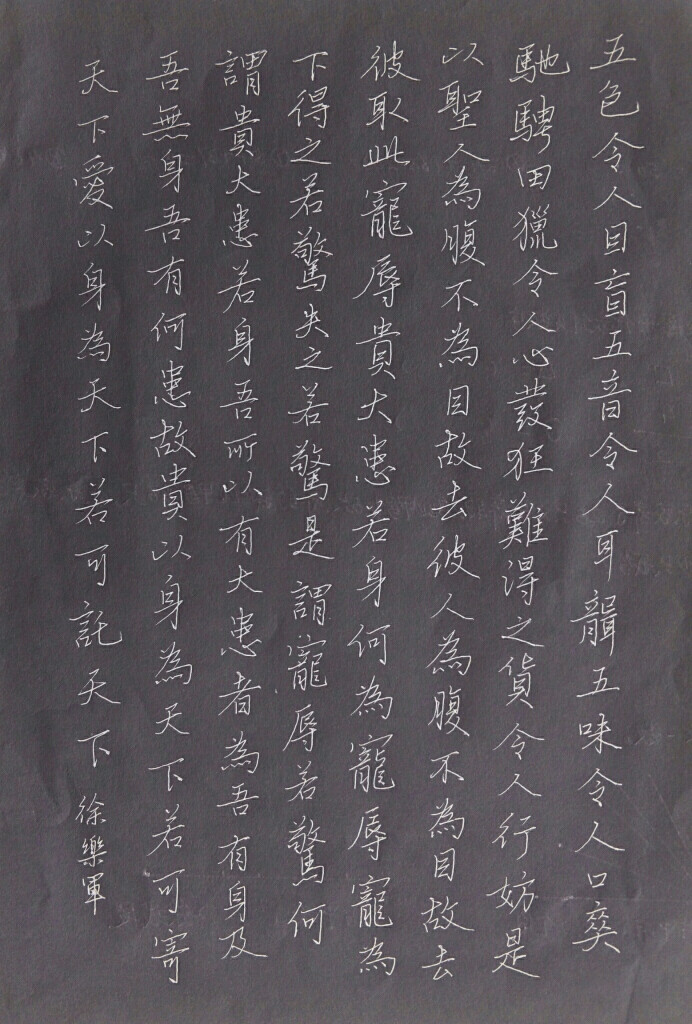 五色令人目盲五音令人耳聾五味令人口爽
馳騁田獵令人心發狂難得之貨令人行妨是
以聖人為腹不為目故去彼人為腹不為目故去
彼取此寵辱貴大患若身何為寵辱寵為
下得之若驚失之若驚是謂寵辱若驚何
謂貴大患若身吾所以有大患者為吾有身及
吾無身吾有何患故貴以身為天下若可寄
天下愛以身為天下若可託天下 徐樂軍